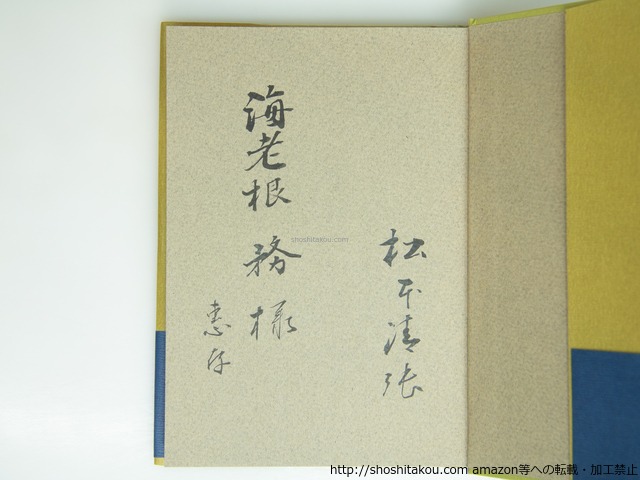 松本清張
海老根務様
恵存
shoshitakou.com
http://shoshitakou.com amazon等への転載・加工禁止